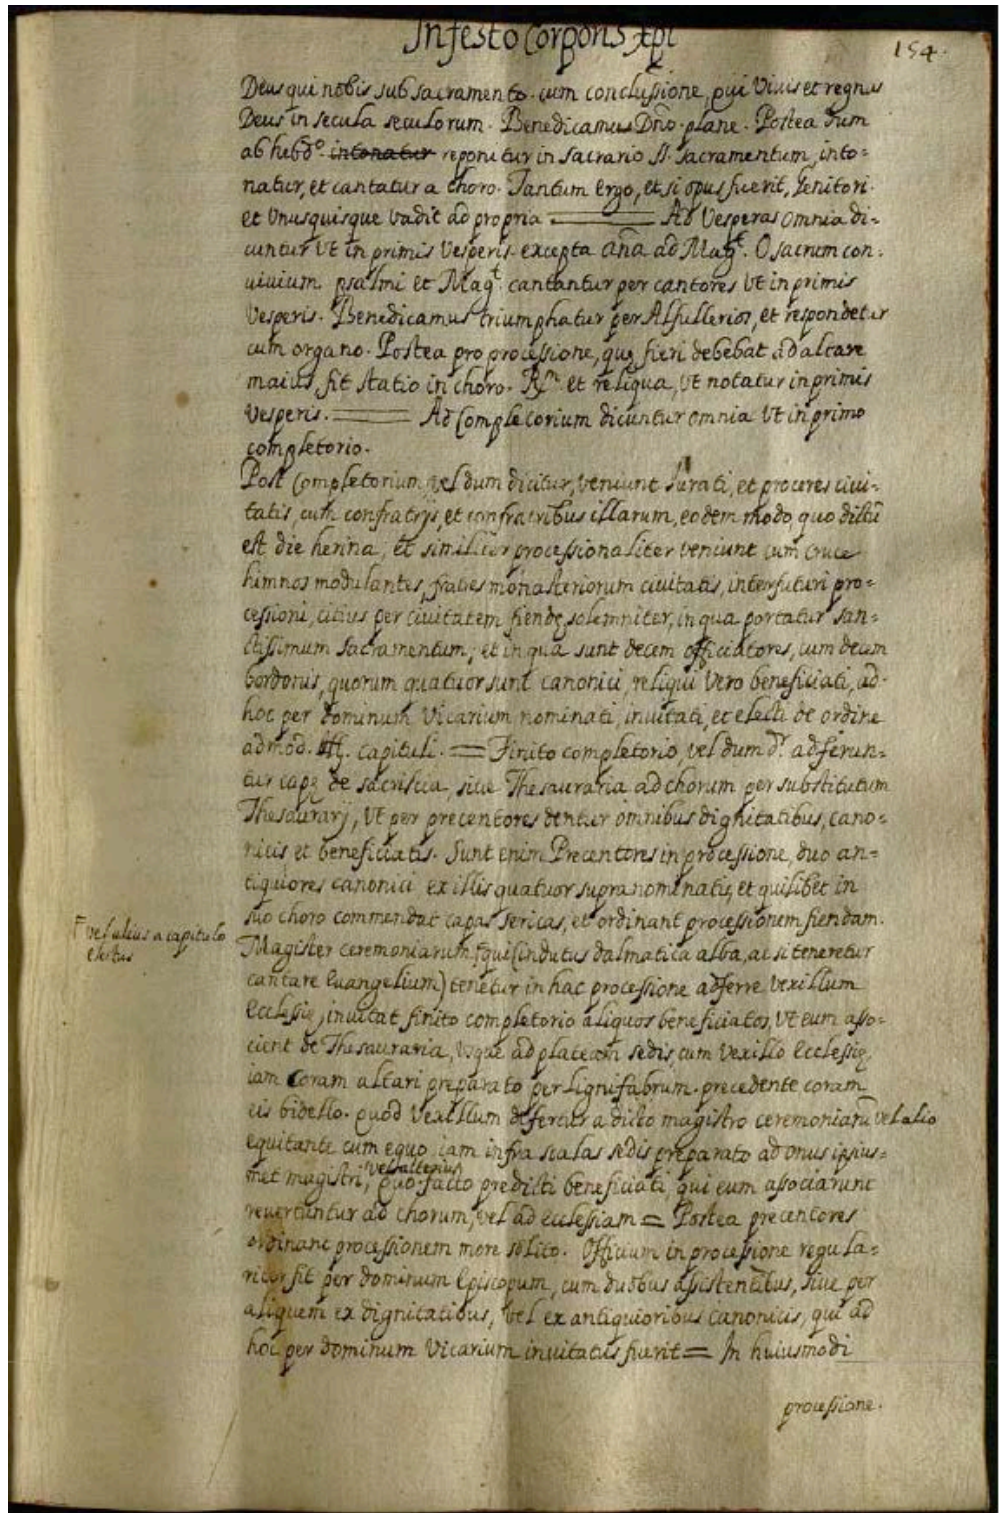 In festo Corporis Xpi
154.
Deus qui nobis sub sacramento. cum conclussione, qui vivis et regnas
Deus in secula seculorum. Benedicamus Dño. plane. Postea dum
ab hebdº. intonatur reponitur in sacrario SS. sacramentum, into=
natur, et cantatur a choro. Tantum ergo, et si opus fuerit, genitori.
et unusquisque vadit ad propria ══ Ad vesperas omnia di=
cuntur ut in primis vesperis. excepta aña ad Magt. O sacrum con=
vivium. psalmi et Magt. cantantur per cantores ut in primis
vesperis. Benedicamus triumphatur per Alfullerios, et respondetur
cum organo. Postea pro processione, quę fieri debebat ad altare
maius, fit statio in choro. et reliqua, ut notatur in primis
vesperis. ══ Ad Completorium dicuntur omnia ut in primo
completorio.
Post Completorium, vel dum dicitur, veniunt Iurati, et proceres civi=
tatis, cum confratrijs, et confratribus illarum, eodem modo, quo dictũ
est die herina, et similiter processionaliter veniunt cum cruce
himnos modulantes, fratres monasteriorum civitatis, interfuturi pro=
cessioni, citius per civitatem fiendę solemniter, in qua portatur san=
ctissimum sacramentum, et in qua sunt decem officiatores, cum decem
bordonis, quorum quatuor sunt canonici, reliqui vero beneficiati, ad
hoc per dominum vicarium nominati, invitati, et electi de ordine
admod. Ill. capituli. ══ Finito completorio, vel dum dr. adferun=
tur capę de sacristia, sive Thesauraria ad chorum per substitutum
Thesaurarij, ut per precentores dentur omnibus dignitatibus, cano=
nicis et beneficiatis. Sunt enim Precentores in processione, duo an=
tiquiores canonici ex illis quatuor supra nominatis, et quilibet in
suo choro commendat capas sericas, et ordinant processionem fiendam.
vel alius a capitulo
electus
Magister ceremoniarum, qui (indutus dalmatica alba, ac si teneretur
cantare Euangelium) tenetur in hac processione adferre vexillum
Ecclesię, invitat finito completorio aliquos beneficiatos, ut eum asso=
cient de Thesauraria, usque ad plateam sedis, cum vexillo Ecclesię,
iam coram altari preparato per lignifabrum. precedente coram
eis bidello. quod vexillum defertur a dicto magistro ceremoniarũ vel alio
equitante cum equo iam infra scalas sedis preparato ad onus ipsius=
vel alterius
met magistri, quo facto predicti beneficiati, qui eum associarunt
revertuntur ad chorum, vel ad ecclesiam = Postea precentores
ordinant processionem more solito. Officium in processione regula=
riter fit per dominum Episcopum, cum duobus assistentibus, sive per
aliquem ex dignitatibus, vel ex antiquioribus canonicis, qui ad
hoc per dominum vicarium invitatus fuerit = In huiusmodi
processione.